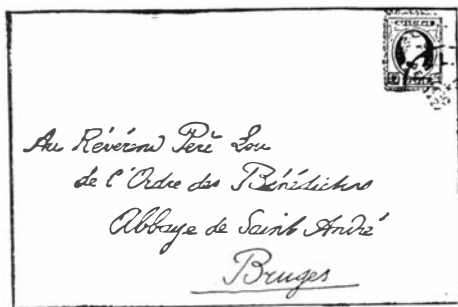 Au Révérend Père Lou
de l'Ordre des Bénédictins
Abbaye de Saint André
Bruges